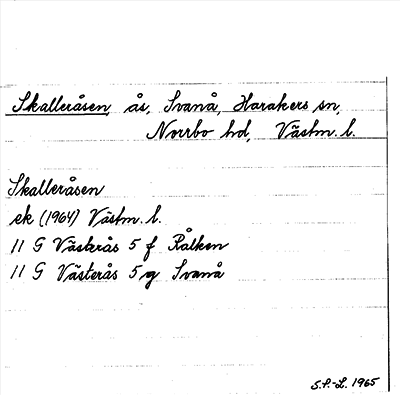 Skalleråsen, ås, Svanå, Harakers sn,
Norrbo hd, Västm. l.
Skalleråsen
ek (1964) Västm. l.
11 G Västerås 5 f Rålken
11 G Västerås 5 g Svanå
S.P.-L. 1965